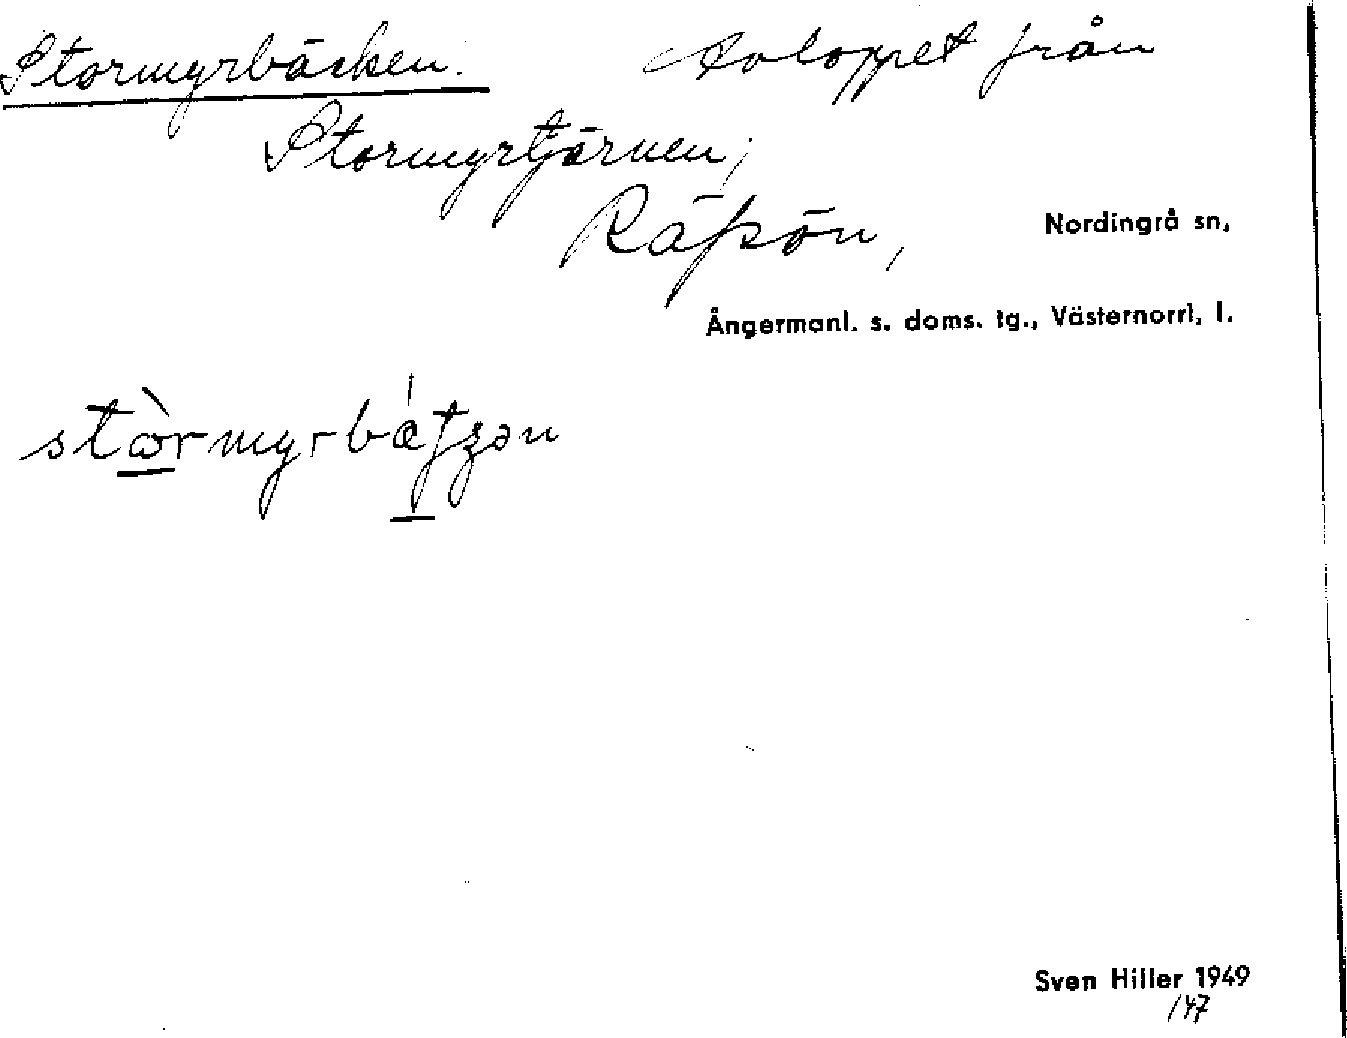 Stormyrbäcken. Avloppet från
Stormyrtjärnen,
Räfsön, Nordingrå sn,
Ångermanl. s. doms. tg., Västernorrl. l.
Sven Hiller 1949
147